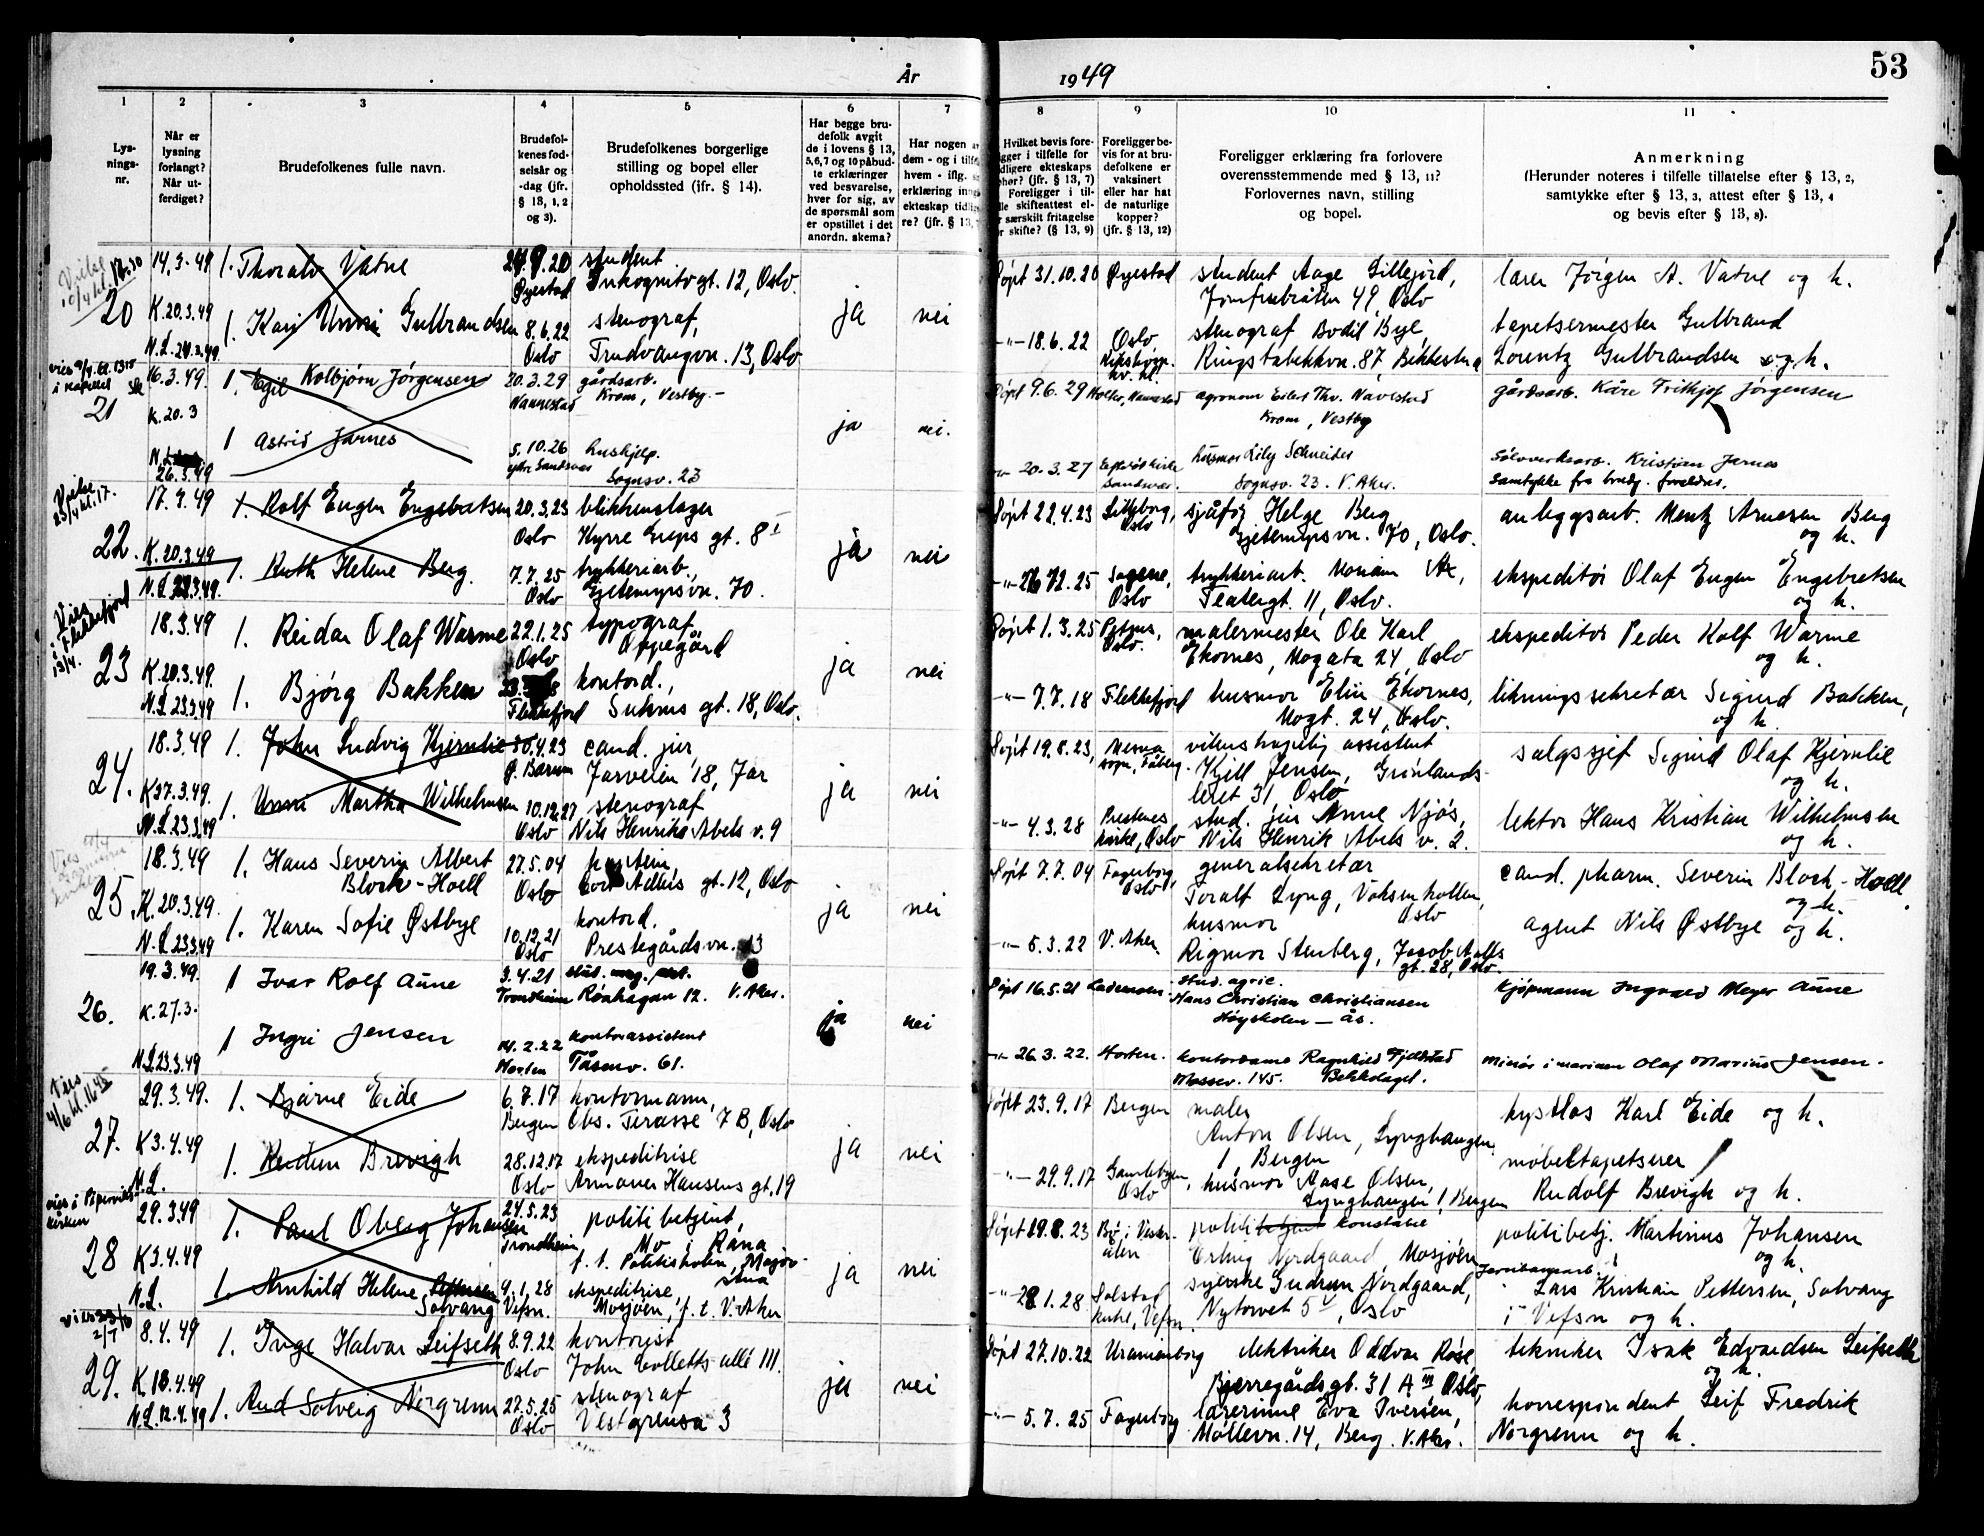 53
År 1949
1 2 3 4 5 6 7 8 9 10 11
Lys-
nings-
nr.
Når er
lysning
forlangt?
Når ut-
ferdiget?
Brudefolkenes fulle navn.
Brudefol-
kenes fød-
selsår og
-dag (jfr.
§ 13, 1, 2
og 3).
Brudefolkenes borgerlige
stilling og bopel eller
opholdssted (ifr. § 14).
Har begge bru-
defolk avgit
de i lovens § 13,
5, 6, 7 og 10 påbud-
te erklæringer
ved besvarelse,
hver for sig, av
de spørsmål som
er opstillet i det
anordn. skema?
Har nogen av
dem - og i tilfe
hvem - iflg.
erklæring inng
ekteskap tidlig
re? (jfr. § 13,
Hvilket bevis fore-
ligger i tilfelle for
tidligere ekteskaps
ophør? (jfr. § 13, 7)
Foreligger i til-
felle skifteattest el-
ler særskilt fritagelse
for skifte? (§ 13, 9)
Foreligger be-
vis for at bru-
defolkene er
vaksinert
eller har hat
de naturlige
kopper?
(jfr. § 13, 12)
Foreligger erklæring fra forlovere
overensstemmende med § 13, 11?
Forlovernes navn, stilling
og bopel.
Anmerkning
(Herunder noteres i tilfelle tillatelse efter § 13, 2,
samtykke efter § 13, 3, attest efter § 13, 4
og bevis efter § 13, 8).
Vielse
10/4 kl. 16.30
20
14.3.49
K. 20.3.49
1. Thoralv Vatne
Øyestad
student
Inkognitogt. 12, Oslo.
ja nei
Døpt 31.10.20 Øyestad
student Aage Lillejord,
Jomfrubråten 49, Oslo
lærer Jørgen A. Vatne og h.
1. Kari Unni Gulbrandsen
8.6.22
Oslo
stenograf,
Trudvangvn. 13, Oslo
-"- 18.6.22 Oslo
stenograf Bodil Bye,
Ringstabekkvn. 87, Bekkestua
tapetsermester Gulbrand
Lorentz Gulbrandsen og h.
i kapellet
21
16.3.49.
K. 20.3
26.3.49
1. Egil Kolbjørn Jørgensen
20.3.29
Nannestad
gårdsarb.
Krom, Vestby.-
ja nei.
Døpt 9.6.29 Holter, Nannestad
agronom Eilert Thv. Navestad
Krom, Vestby
gårdsarb. Kåre Frithjof Jørgensen
1 Astrid Jarnes
5.10.26
hushjelp.
Sognsv. 23
-"- 20.3.27
Sandsvær.
husmor Lily Schneider
Sognsv. 23. V. Aker.
Sølvverksarb. Kristian Jarnes
Samtykke fra brudg. foreldre.
Vielse
23/4 kl. 17.
22.
17.3.49
K. 20.3.49
1. Rolf Eugen Engebretsen
20.3.23
Oslo
blikkenslager
Kyrre Greps gt. 8 I
ja nei
Døpt 22.4.23 Lilleborg,
Oslo
sjåfør Helge Berg
Gjetemyrsvn. 70, Oslo.
anleggsarb. Mentz Arnesen Berg
og h.
1. Ruth Helene Berg.
7.7.25
Oslo
trykkeriarb.,
Gjetemyrsvn. 70.
Sagene,
Oslo
trykkeriarb.
Teatergt. 11, Oslo.
ekspeditør Olaf Eugen Engebretsen
og h.
Vies
i Flekkefjord
13/4.
23
18.3.49
K. 20.3.49.
N.L. 23.3.49
1. Reidar Olaf Warme
22.1.25
Oslo
typograf
Oppegård
ja nei
Døpt 1.3.25 Petrus,
Oslo.
malermester Ole Karl
Ekornes, Mogata 24, Oslo
ekspeditør Peder Rolf Warme
og h.
1. Bjørg Bakken
Flekkefjord
kontord.,
Suhms gt. 18, Oslo.
-"- 7.7.18 Flekkefjord
husmor Elin Ekornes,
Mogt. 24, Oslo.
likningssekretær Sigurd Bakken,
og h.
24.
18.3.49
K 27.3.49.
N.L. 23.3.49
1. John Ludvig Kjernlie
30.4.23
Ø. Bærum
cand. jur,
Jarveien 18, Jar
ja nei
Døpt 19.8.23, Mesna
sogn, Fåberg.
vitenskapelig assistent
Kjell Jensen, Grønlands-
leret 31 Oslo
salgssjef Sigurd Olaf Kjernlie
og h.
1. Unni Martha Wilhelmsen
10.12.27
Oslo
stenograf
Nils Henriks Abels v. 9
-"- 4.3.28 Prestenes
kirke, Oslo
stud. jur Anne Njøs,
Nils Henrik Abels v. 2.
lektor Hans Kristian Wilhelmsen
og h.
25.
18.3.49
K. 20.3.49.
N.L. 23.3.49
1. Hans Severin Albert
Bloch-Hoell
27.5.04
Oslo
Cort Adlers gt. 12, Oslo
ja nei
Døpt 7.7.04 Fagerborg,
Oslo
generalsekretær
Toralf Lyng, Voksenkollen,
Oslo
cand. pharm. Severin Bloch-Hoell
og h.
1. Karen Sofie Østbye
10.12.21
Oslo
kontord.
Prestegårdsvn. 13
-"- 5.3.22 V. Aker.
husmor
Rigmor Stenberg, Jacob Aalls
gt. 28, Oslo.
agent Nils Østbye og h.
26.
19.3.49.
K. 27.3.
N.L. 23.3.49
1 Ivar Rolf Aune
3.4.21
Trondheim
Rønhagan 12. V. Aker.
ja nei
Døpt 16.5.21 Lademoen.
stud. agric.
Hans Christian Christiansen
Høyskolen - Ås.
kjøpmann Ingvald Meyer Aune
1 Ingri Jensen
14.2.22
Horten
kontorassistent
Tåsenv. 61.
-"- 26.3.22. Horten.
kontordame Ragnhild Fjeldstad
Mossev. 145. Bekkelaget.
Minør i marinen Olaf Marius Jensen.
Vies
4/6 kl. 16.45
27.
29.3.49.
K 3.4.49
N.L.
1. Bjarne Eide
6.7.17
Bergen
kontormann,
Obs. Terasse 7 B, Oslo
ja nei
Døpt 23.9.17 Bergen
maler
Anton Olsen, Lynghaugen
1, Bergen
kystlos Karl Eide og h.
1. Reidun Brevigh
28.12.17
Oslo
ekspeditrise
Armauer Hansens gt. 19
-"- 29.9.17 Gamlebyen,
Oslo
husmor Aase Olsen,
Lynghaugen 1, Bergen
møbeltapetserer
Rudolf Brevigh og h.
vies i Pipervika
kirken
28
29.3.49
K 3.4.49
N.L.
1. Paul Oberg Johansen
24.5.23
Trondheim
politibetjent,
Mo i Rana
f. t. Politiskolen, Majorstua
ja nei
Døpt 19.8.23 Bø i Vester-
ålen
politibetjent konstabel
Erling Nordgaard, Mosjøen
politibetj. Martinus Johansen
og h.
1. Arnhild Helene Pettersen
Solvang
9.1.28
Vefsn.
ekspeditrise,
Mosjøen, f. t. V. Aker
Dolstad
kirke, Vefsn.
syerske Gudrun Nordgaard,
Nytorvet 5, Oslo
Jernbanearb.
Lars Kristian Pettersen, Solvang
i Vefsn og h.
29.
8.4.49
K 18.4.49
N.L. 12.4.49
1. Inge Halvar Leifseth
8.9.22
Oslo
kontorist
John Colletts allé 111.
ja nei
Døpt 27.10.22 Uranienborg
elektriker Oddvar Røse
Bjerregårds gt. 31 A III Oslo,
tekniker Isak Edvardsen Leifseth
og h.
1. Aud Solveig Norgrenn
22.5.25
Oslo
stenograf
Vestgrensa 3
-"- 5.7.25 Fagerborg
lærerinne Eva Iversen,
Møllevn. 14, Berg. V. Aker.
korrespondent Leif Fredrik
Norgrenn og h.